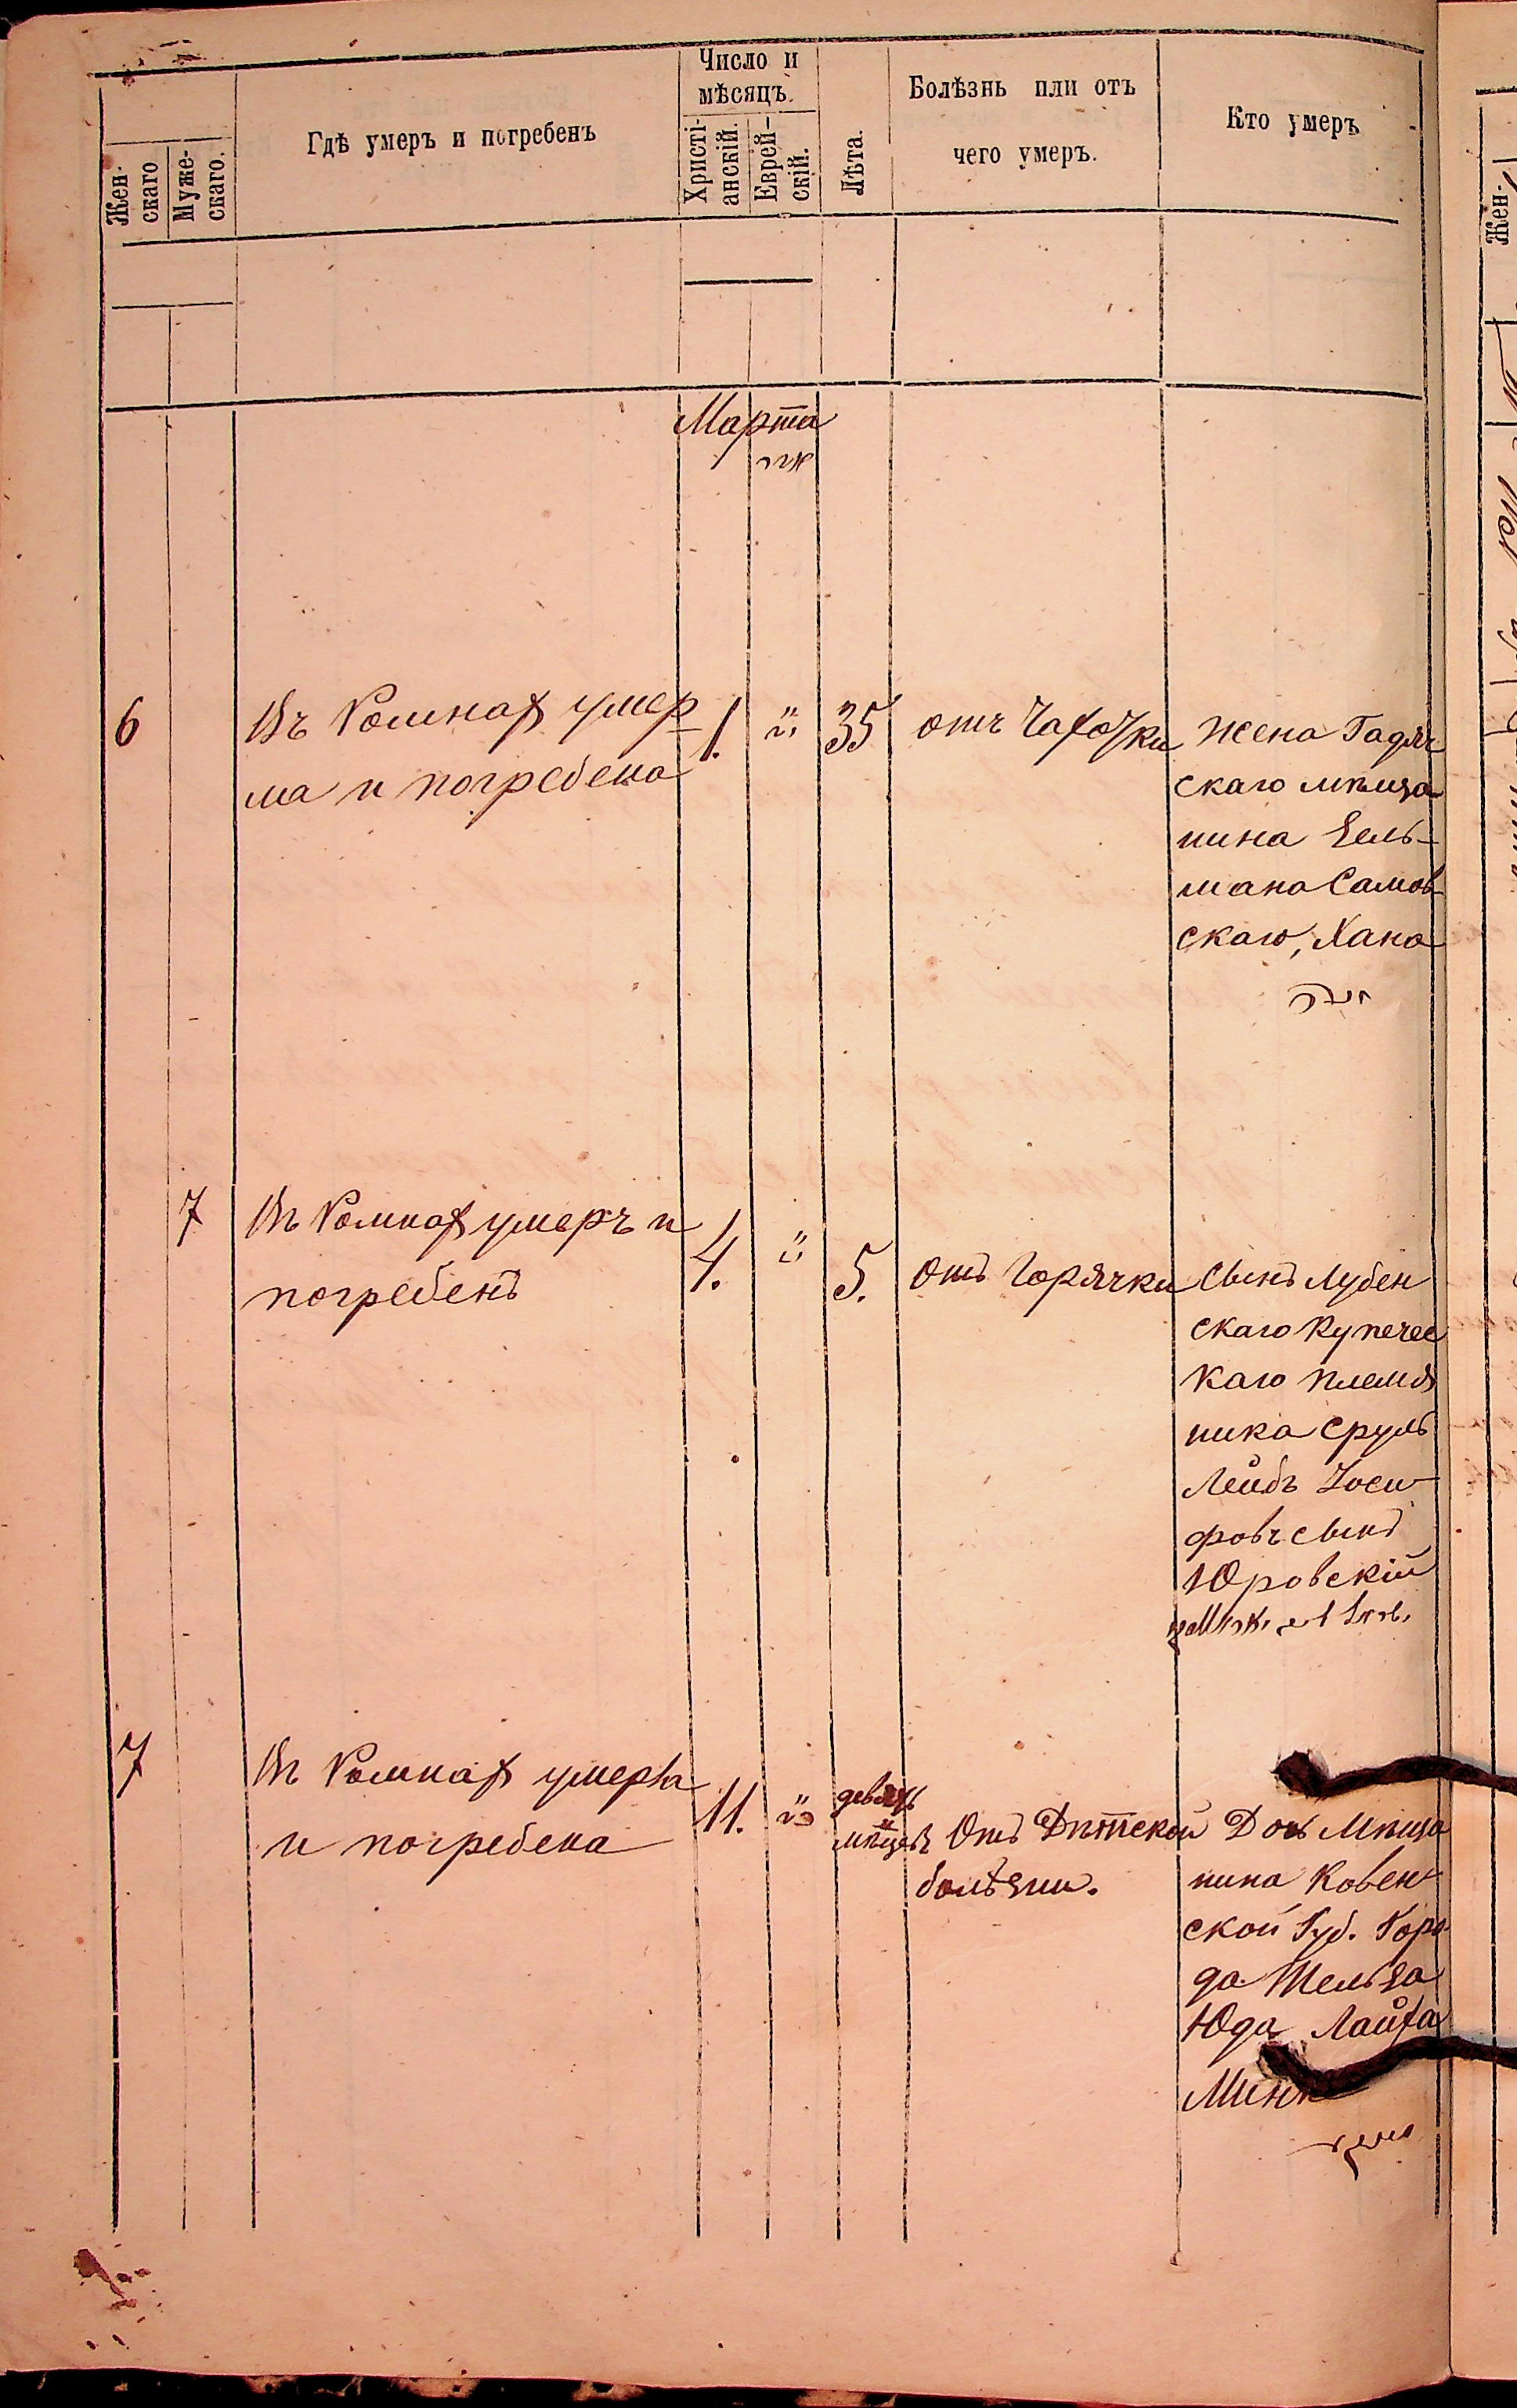 Число и
мѣсяцъ.
Жен-
скаго
Муже-
скаго.
Гдѣ умеръ и погребенъ
Христі-
анскій.
Еврей-
скій.
Лѣта.
Болѣзнь или отъ
чего умеръ.
Кто умеръ
Жен-
Марта
6
Въ Ромнахъ умер
ла и погребена
1.
35
отъ Чахотки
Жена Гадяч
скаго мѣща
нина Зель-
мана Самов
скаго, Хана
7
Въ Ромнахъ умеръ и
погребенъ
4.
5.
Отъ Горячки
Сынъ Лубен
скаго Купечес
каго племя
ника Сруль
Лейбъ Іоси-
фовъ сынъ
Юровскій
7
Въ Ромнахъ умерла
и погребена
11.
девять
мѣцевъ
Отъ Дѣтской
болѣзни.
Дочь Мѣща
нина Ковен
ской Губ. Горо
да Тельза
Юда Лайха